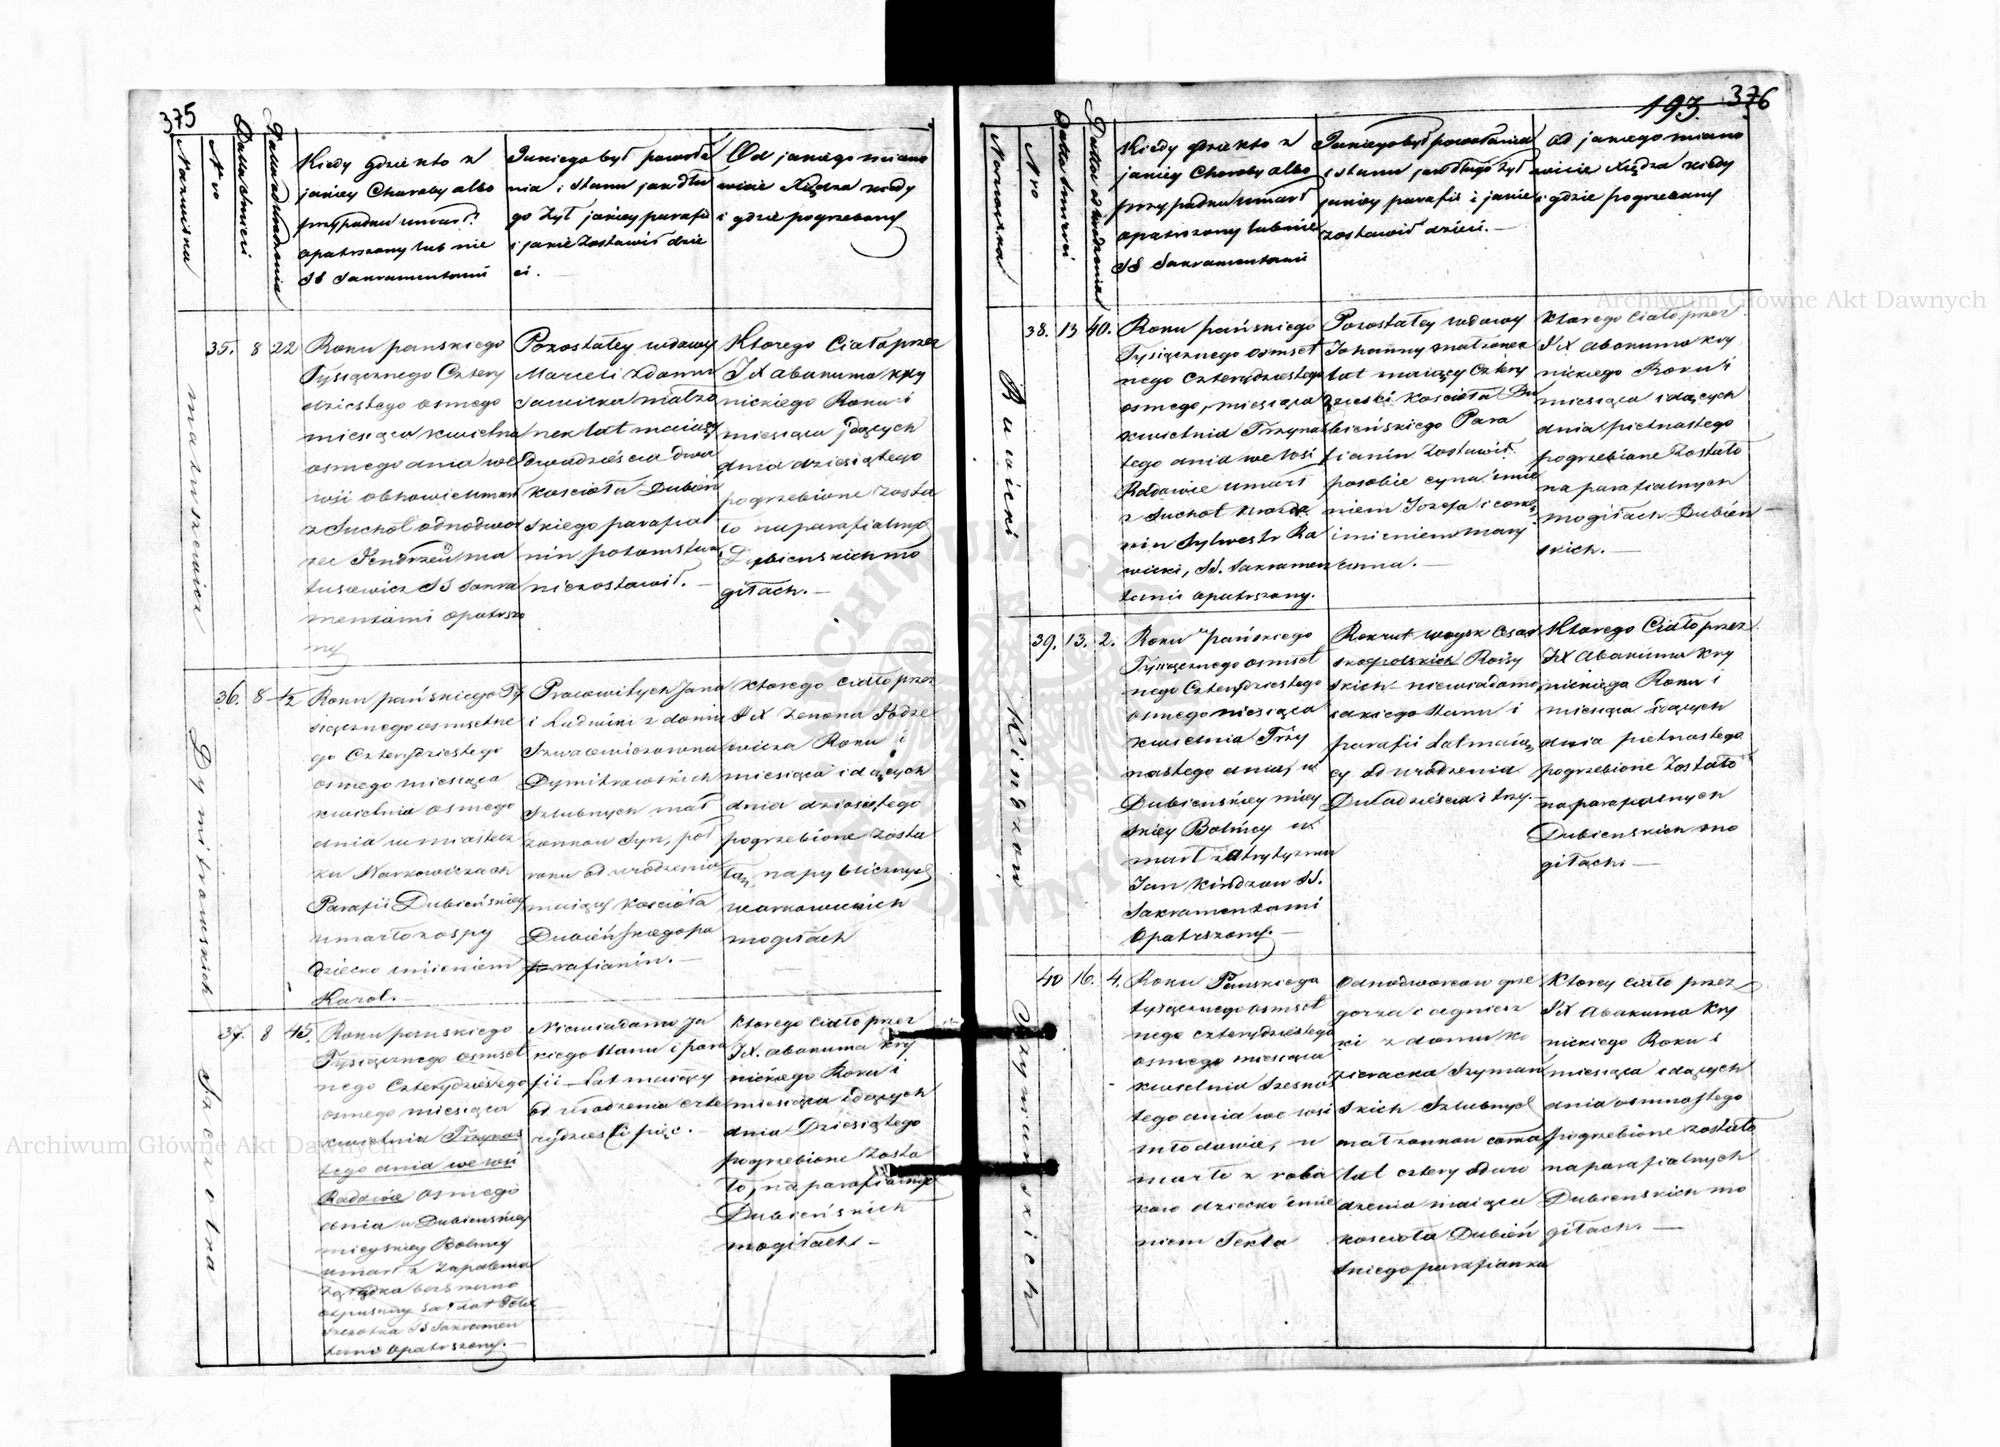 375
Nazwiska
Nro
Data śmierci
Data urodzenia
Kiedy gdzie kto z
jakiey Choroby albo
przypadku umarł?
opatrzony lub nie
SS Sakramentami
Jakiego był powoła
nia i stanu jak dłu
go żył jakiey parafii
i jakie zostawił dzie
ci.
Od jakiego miano
wicie Xiędza kiedy
i gdzie pogrzebany
35. 8 22
Matuszewicz
Roku panskiego
Tysiącznego Cztery
dziestego osmego
miesiąca kwietnia
osmego dnia we
wsi umarł
z Suchot odnodwor
zec Jendrzeu ma
tusewicz SS Sakra
mentami opatrzo
ny
Pozostałey wdowy
Marceli z domu
Sawicka małżo
nek lat maiący
dwadzieścia dwa
kościoła Dubień
skiego parafia
nin potomstwa
niezostawił. —
Ktorego Ciało przez
JX Abakuma kry
nickiego Roku i
miesiąca idących
dnia dziesiątego
pogrzebione zosta
ło na parafialnych
Dubienskich mo
giłach. —
36. 8 1/2
Dymitrowskich
Roku pańskiego Ty
siącznego osmsetne
go Czterydziestego
osmego miesiąca
kwietnia osmego
dnia w miastecz
ku Warkowiczach
Parafii Dubieńskiey
umarło z ospy
dziecko imieniem
Karol. —
Pracowitych Jana
i Ludwiki z domu
Szwacewiczowna
Dymitrowskich
szlubnych mał
żonkow Syn, poł
roku od urodzenia
maiący kościoła
Dubieńskiego pa
rafianin. —
Ktorego ciało przez
JX Zenona Jodze
wicza Roku i
miesiąca idących
dnia dziesiątego
pogrzebione zosta
ło, na publicznych
warkowickich
mogiłach
37. 8 45.
Szczotka
Roku panskiego
Tysiącznego osmset
nego Czterydziestego
osmego miesiąca
kwietnia Trzynas
tego dnia we wsi
Radowie osmego
dnia w Dubienskiey
mieyskiey Bolnicy
umarł z zapalenia
żołądka
sałdat
Szczotka SS Sakramen
tami opatrzony. —
Niewiadomo ja
kiego stanu i para
fii — Lat maiący
od urodzenia czte
rydzieści pięć. —
Ktorego Ciało przez
JX. Abakuma kry
nickiego Roku i
miesiąca idących
dnia Dziesiątego
pogrzebione zosta
ło, na parafialnych
Dubieńskich
mogiłach. —
193. 376
Nazwiska
Nro
Data śmierci
Data urodzenia
Kiedy gdzie kto z
jakiey Choroby albo
przypadku umarł
opatrzony lub nie
SS Sakramentami
Jakiego był powołania
i stanu jak długo żył
jakiey parafii i jakie
zostawił dzieci. —
Od jakiego miano
wicie Xiędza kiedy
i gdzie pogrzebany
38. 13 40.
Rawicki
Roku pańskiego
Tysiącznego osmset
nego Czterydziestego
osmego, miesiąca
kwietnia Trzynas
tego dnia we wsi
Radowie umarł
z Suchot
Sylwestr Ra
wicki, SS. Sakramen
tami opatrzony.
Pozostałey wdowy
Johanny małżonek
lat maiący Cztery
dzieści kościoła Du
bieńskiego Para
fianin Zostawił
po sobie syna imie
niem Jozefa i corkę
imieniem mary
anna. —
Ktorego Ciało przez
JX Abakuma kry
nickiego Roku i
miesiąca idących
dnia pietnastego
pogrzebione Zostało
na parafialnych
mogiłach Dubień
skich. —
39. 13. 2.
Kindzow
Roku Pańskiego
Tysiącznego osmset
nego Czterydziestego
osmego miesiąca
kwietnia Trzy
nastego dnia, w
Dubieńskiey miey
skiey Bolnicy u
marł
Jan Kindzow SS.
Sakramentami
opatrzony. —
Rekrut woysk Cesar
Rossy
skich — niewiadomo
iakiego stanu i
parafii Lat maią
cy od urodzenia
Dwadzieścia i trzy. —
Ktorego Ciało przez
JX Abakuma Kry
nickiego Roku i
miesiąca idących
dnia pietnastego
pogrzebione Zostało
na parafialnych
Dubienskich mo
giłach. —
40 16. 4.
Szymanskich
Roku Panskiego
tysiącznego osmset
nego czterydziestego
osmego miesiąca
kwietnia szesnas
tego dnia we wsi
młodawie, u
marło z roba
kow dziecko imie
niem Tekla
Odnodworcow grze
gorza i agniesz
ki z domu ko
zieracka Szyman
skich Szlubnych
małżonkow corka
lat cztery od uro
dzenia maiąca
kościoła Dubień
skiego parafianka
Ktorey ciało przez
JX Abakuma Kry
nickiego Roku i
miesiąca idących
dnia osmnastego
pogrzebione zostało
na parafialnych
Dubienskich mo
giłach. —
Archiwum Główne Akt Dawnych
Archiwum Główne Akt Dawnych